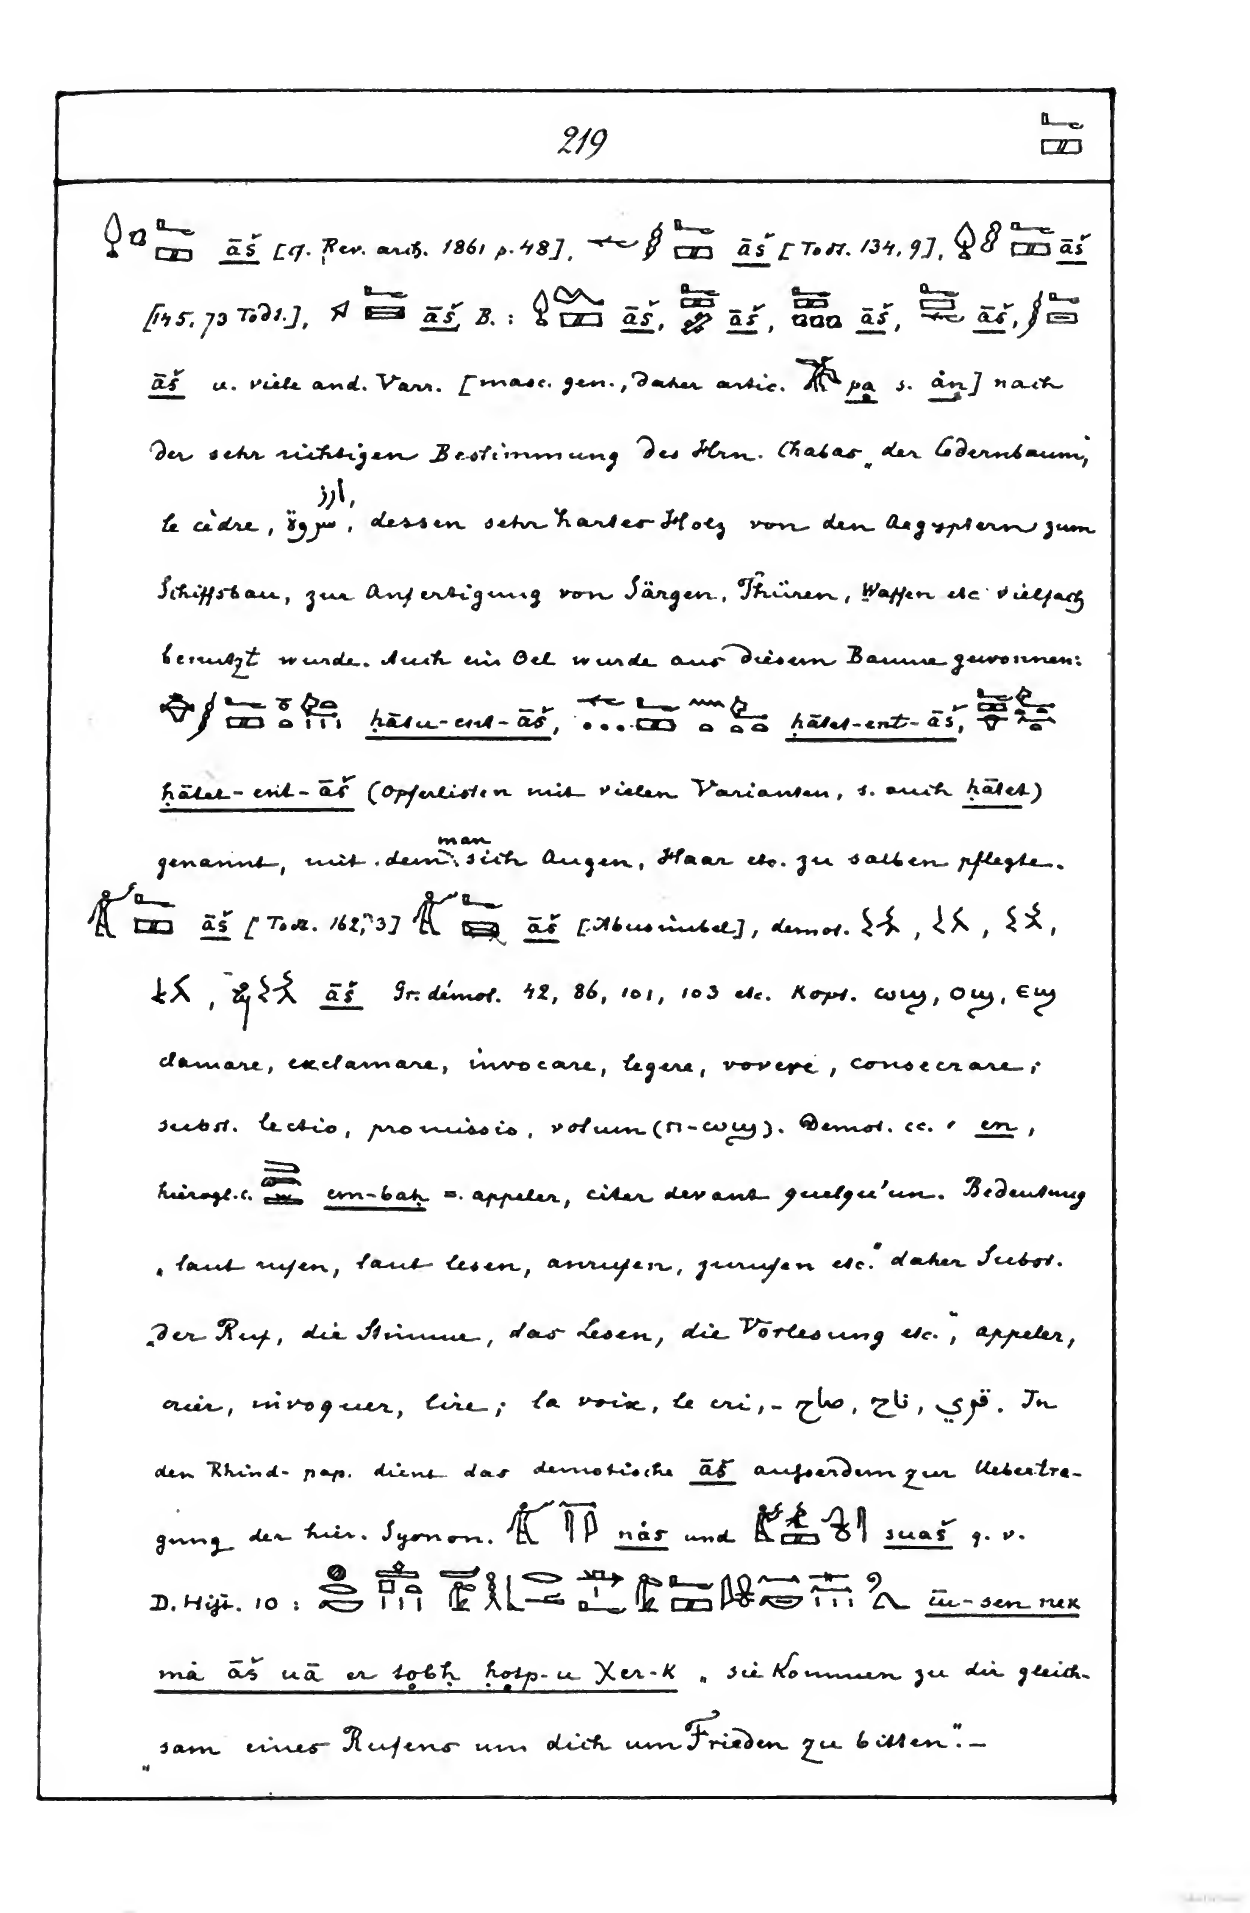 219
āš [cf. Rev. arch. 1861 p. 48], āš [Todt. 134, 9], āš
[145, 73 Todt.], āš, B. : āš, āš, āš, āš,
āš u. viele and. Varr. [masc. gen., daher artic. pa s. ȧn] nach
der sehr richtigen Bestimmung des Hrn. Chabas „der Cedernbaum",
le cèdre, ارز, dessen sehr hartes Holz von den Aegyptern zum
Schiffsbau, zur Anfertigung von Särgen, Thüren, Waffen etc vielfach
benutzt wurde. Auch ein Oel wurde aus diesem Baume gewonnen:
ḥātu-ent-āš, ḥātet-ent-āš,
ḥātet-ent-āš (Opferlisten mit vielen Varianten, s. auch ḥātet)
genannt, mit dem man sich Augen, Haar etc. zu salben pflegte.
āš [Todt. 162, 3] āš [Abusimbel], demot.
āš Gr. démot. 42, 86, 101, 103 etc. Kopt. ⲱϣ, ⲟϣ, ⲉϣ
clamare, exclamare, invocare, legere, vovere, consecrare;
subst. lectio, promissio, votum (ⲡ-ⲱϣ). Demot. cc. en,
hierogl. c. em-baḥ = appeler, citer devant quelqu'un. Bedeutung
„laut rufen, laut lesen, anrufen, zurufen etc." daher Subst.
„der Ruf, die Stimme, das Lesen, die Vorlesung etc.", appeler,
crier, invoquer, lire; la voix, le cri, - صاح, . In
den Rhind-pap. dient das demotische āš aufserdem zur Uebertra-
gung der hier. Synon. nȧs und suaš q. v.
D. Hist. 10 : iu-sen nek
mȧ āš uā er sobḥ ḥotp-u χer-k „sie kommen zu dir gleich-
sam eines Rufens um dich um Frieden zu bitten". -